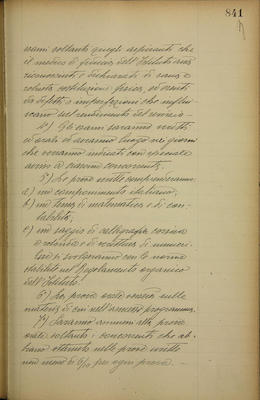 841
esami soltanto quegli aspiranti che
il medico di fiducia dell'Istituto avrà
riconosciuti e dichiarati di sana e
robusta costituzione fisica, ed esenti
da difetti o imperfezioni che influi-
scano sul rendimento del servizio.
4°) Gli esami saranno scritti
ed orali ed avranno luogo nei giorni
che verranno indicati con speciale
avviso a ciascun concorrente.
5°) Le prove scritte comprenderanno:
a) un componimento italiano;
b) un tema di matematica e di con-
tabilità;
c) un saggio di calligrafia corsiva
e rotonda e di scrittura di numeri.
Esse si svolgeranno con le norme
stabilite nel Regolamento organico
dell'Istituto.
6°) La prova orale verserà sulle
materie di cui nell'annesso programma.
7°) Saranno ammessi alla prova
orale soltanto i concorrenti che ab-
biano ottenuto nelle prove scritte
non meno di 6/10 per ogni prova.